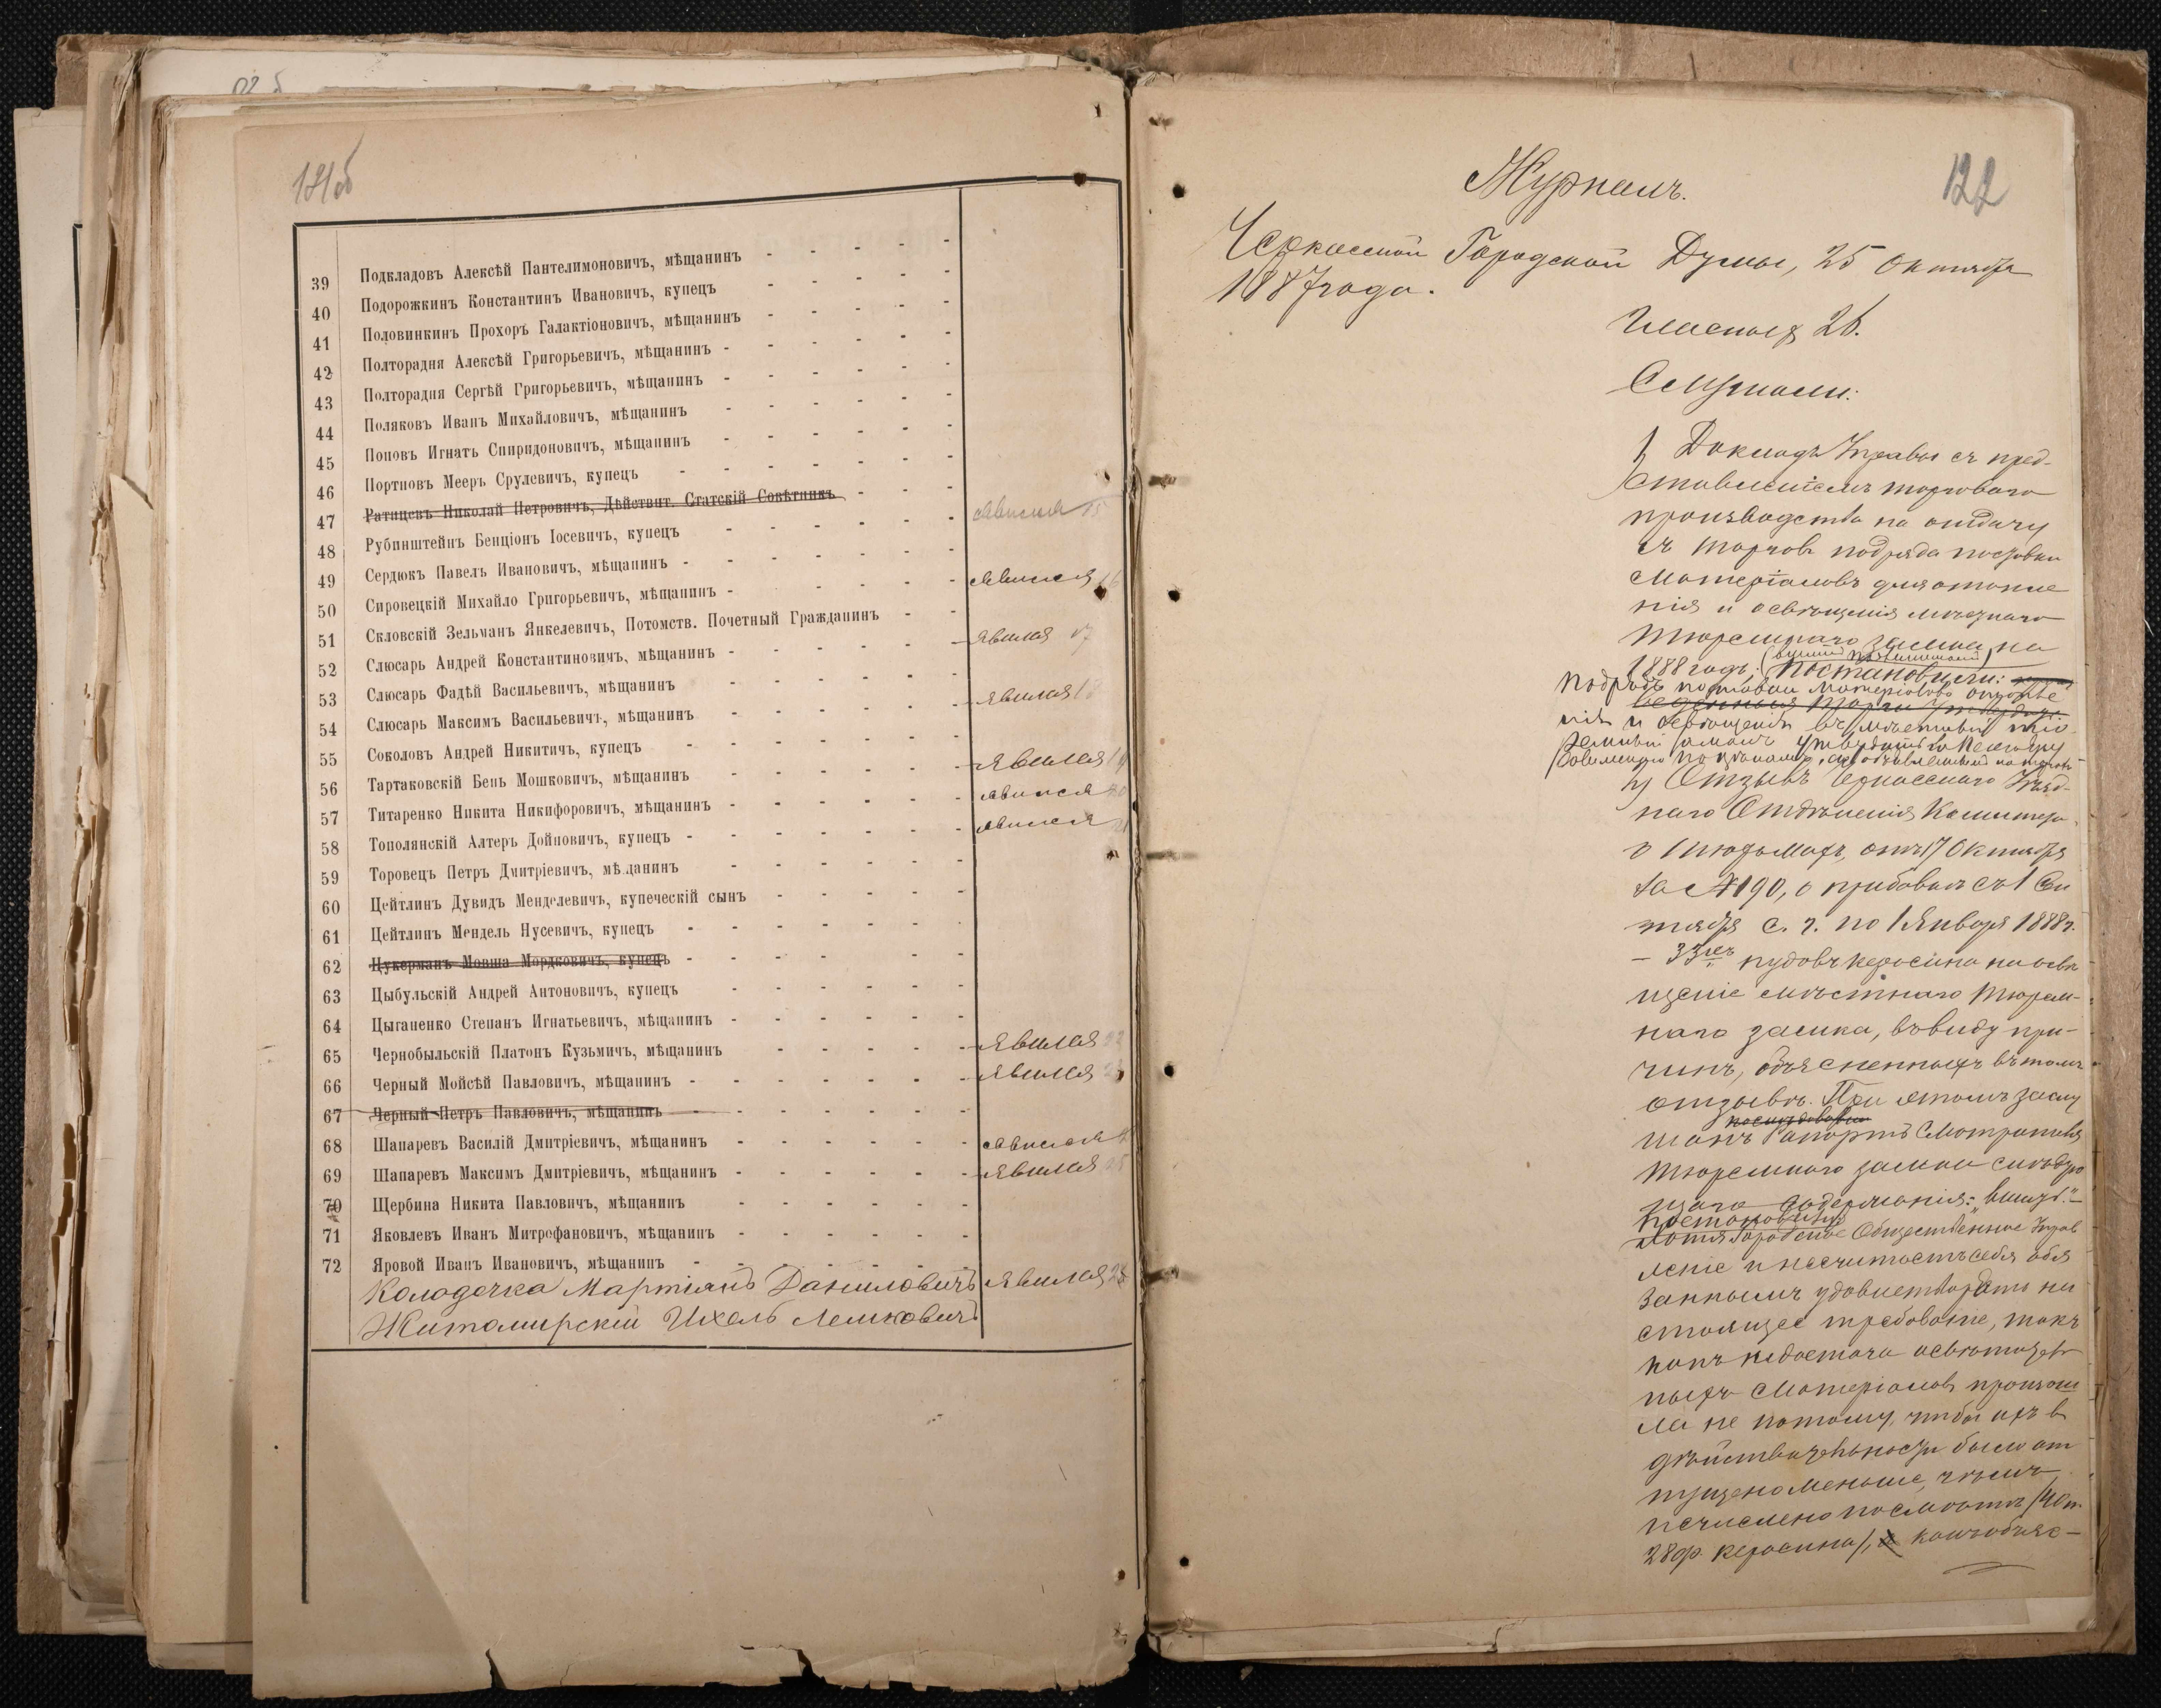 121об
39 Подкладовъ Алексѣй Пантелимоновичъ, мѣщанинъ - - - - -
40 Подорожкинъ Константинъ Ивановичъ, купецъ - - - - -
41 Половинкинъ Прохоръ Галактіоновичъ, мѣщанинъ - - - - -
42 Полторадня Алексѣй Григорьевичъ, мѣщанинъ - - - - - -
43 Полторадня Сергѣй Григорьевичъ, мѣщанинъ - - - - - -
44 Поляковъ Иванъ Михайловичъ, мѣщанинъ - - - - - -
45 Поповъ Игнатъ Спиридоновичъ, мѣщанинъ - - - - - -
46 Портновъ Мееръ Срулевичъ, купецъ - - - - - - -
47 Ратицевъ Николай Петровичъ, Дѣйствит. Статскій Совѣтникъ - - -
48 Рубинштейнъ Бенціонъ Іосевичъ, купецъ - - - - - - явился 15
49 Сердюкъ Павелъ Ивановичъ, мѣщанинъ - - - - - - -
50 Сировецкій Михайло Григорьевичъ, мѣщанинъ - - - - - - явился 16
51 Скловскій Зельманъ Янкелевичъ, Потомств. Почетный Гражданинъ - -
52 Слюсарь Андрей Константиновичъ, мѣщанинъ - - - - - - явился 17
53 Слюсарь Фадѣй Васильевичъ, мѣщанинъ - - - - - -
54 Слюсарь Максимъ Васильевичъ, мѣщанинъ - - - - - - явился 18
55 Соколовъ Андрей Никитичъ, купецъ - - - - - - -
56 Тартаковскій Бень Мошковичъ, мѣщанинъ - - - - - - явился 19
57 Титаренко Никита Никифоровичъ, мѣщанинъ - - - - - - явился 20
58 Тополянскій Алтеръ Дойновичъ, купецъ - - - - - - - явился 21
59 Торовецъ Петръ Дмитріевичъ, мѣщанинъ - - - - - -
60 Цейтлинъ Дувидъ Менделевичъ, купеческій сынъ - - - - -
61 Цейтлинъ Мендель Нусевичъ, купецъ - - - - - - -
62 Цукерманъ Мовша Мордковичъ, купецъ - - - - - - -
63 Цыбульскій Андрей Антоновичъ, купецъ - - - - - -
64 Цыганенко Степанъ Игнатьевичъ, мѣщанинъ - - - - - -
65 Чернобыльскій Платонъ Кузьмичъ, мѣщанинъ - - - - - явился 22
66 Черный Мойсѣй Павловичъ, мѣщанинъ - - - - - - - явился 23
67 Черный Петръ Павловичъ, мѣщанинъ - - - - - - -
68 Шапаревъ Василій Дмитріевичъ, мѣщанинъ - - - - - - явился
69 Шапаревъ Максимъ Дмитріевичъ, мѣщанинъ - - - - - - явился 25
70 Щербина Никита Павловичъ, мѣщанинъ - - - - - -
71 Яковлевъ Иванъ Митрофановичъ, мѣщанинъ - - - - - -
72 Яровой Иванъ Ивановичъ, мѣщанинъ - - - - - - -
Колодочка Мартіанъ Даниловичъ явился 26
Житомирскій Ихель Лейковичъ
122
Журналъ.
Черкасской Городской Думы, 25 Октября
1887 года.
Гласныхъ 26.
Слушали:
1) Докладъ Управы съ пред-
ставленіемъ торговаго
производства на отдачу
съ торговъ подряда поставки
матеріаловъ для отопле
нія и освѣщенія мѣстнаго
тюремнаго замка на
1888 годъ. Постановили:
Подрядъ поставки матеріаловъ отопле
веденныя торги утвердить
нія и освѣщенія въ мѣстный тю
ремный замокъ утвердить за
2) Отзывъ Черкасскаго Уѣзд-
наго Отдѣленія Комитета
о Тюрьмахъ, отъ 17 Октября
за №190, о прибавкѣ съ 1 Сен
тября с. г. по 1 Января 1888 г.
- 33 пудовъ керосина на освѣ
щеніе мѣстнаго тюрем-
наго замка, въ виду при-
чинъ, объясненныхъ въ томъ
отзывѣ. При этомъ заслу
шанъ рапортъ Смотрителя
тюремнаго замка слѣдую
щаго содержанія:
Постановили:
хотя Городское Общественное Управ
леніе и не считаетъ себя обя
заннымъ удовлетворять на
стоящее требованіе, такъ
какъ недостача освѣтитель
ныхъ матеріаловъ произош
ла не потому, чтобы ихъ въ
дѣйствительности было от
пущено меньше, чѣмъ
исчислено по смѣтѣ /40 п.
28 ф. керосина/, какъ объяс-